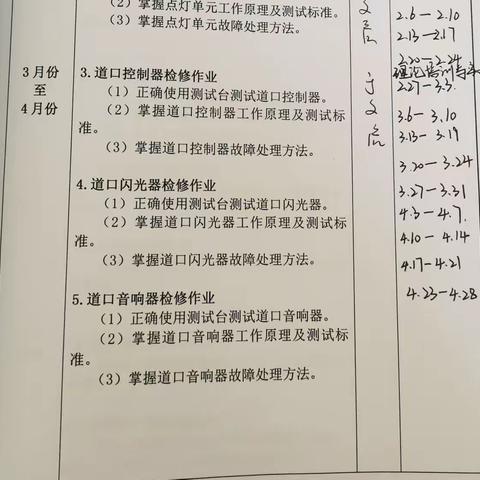 （2）掌握点灯单元工作原理及测试标准。
（3）掌握点灯单元故障处理方法。
3月份
至
4月份
3.道口控制器检修作业
（1）正确使用测试台测试道口控制器。
（2）掌握道口控制器工作原理及测试标
准。
（3）掌握道口控制器故障处理方法。
4.道口闪光器检修作业
（1）正确使用测试台测试道口闪光器。
（2）掌握道口闪光器工作原理及测试标
准。
（3）掌握道口闪光器故障处理方法。
5.道口音响器检修作业
（1）正确使用测试台测试道口音响器。
（2）掌握道口音响器工作原理及测试标
准。
（3）掌握道口音响器故障处理方法。
文
于
文
2.6—2.10
2.13—2.17
2.20—2.24
理论培训
2.27—3.3
3.6—3.10
3.13—3.19
3.20—3.24
3.27—3.31
4.3—4.7.
4.10—4.14
4.17—4.21
4.23—4.28